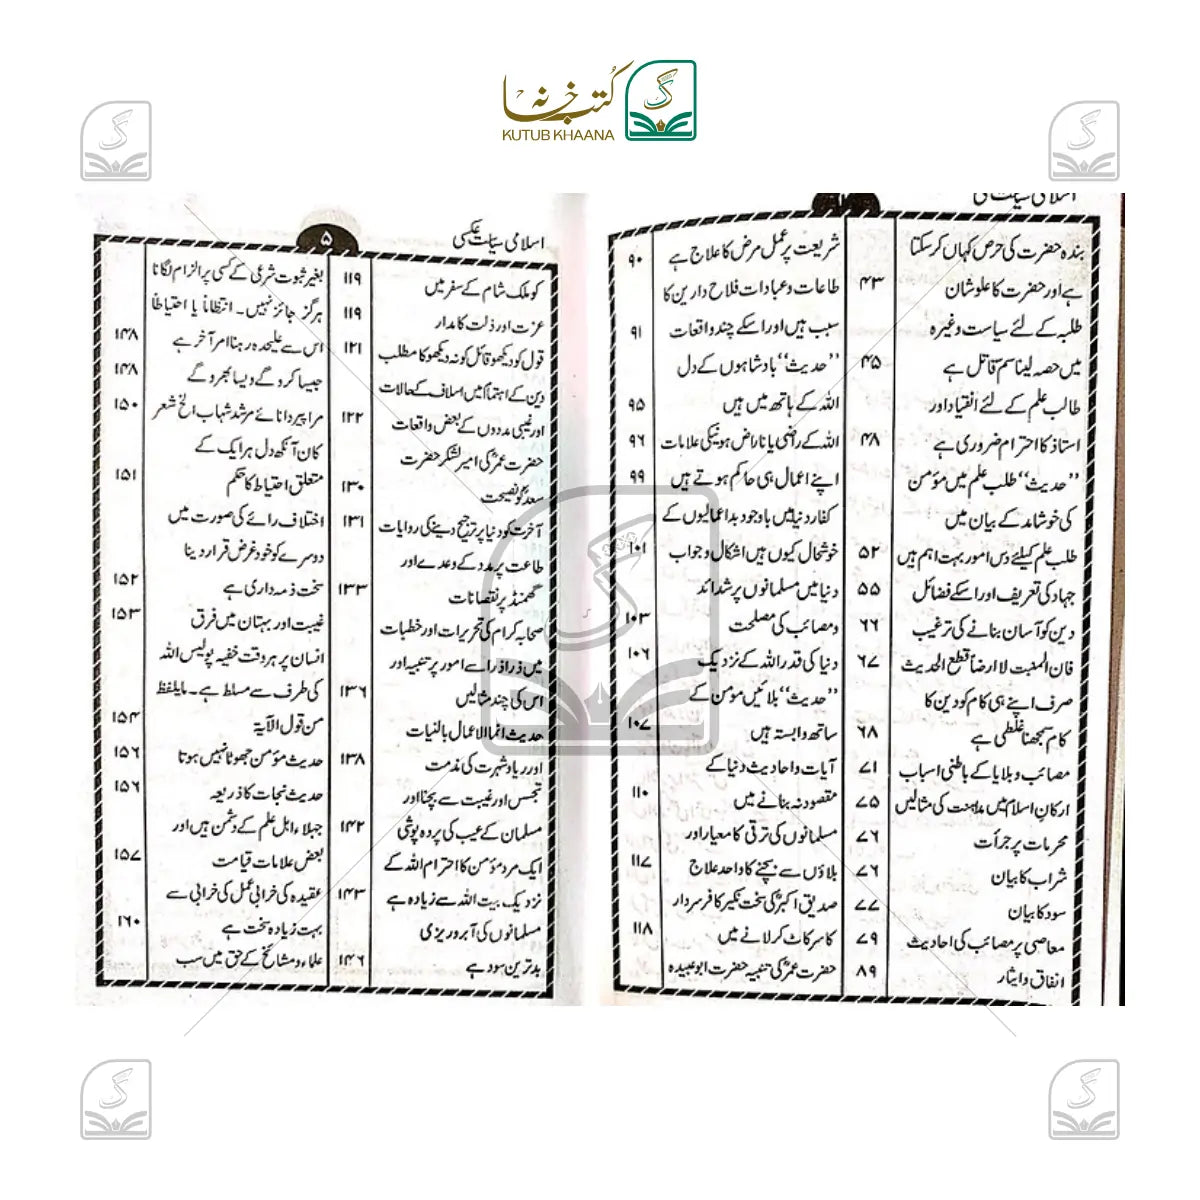 کتب خانہ
KUTUB KHAANA
اسلامی سیاست عکسی
بندہ حضرت کی حرص کہاں کر سکتا
ہے اور حضرت کا علو شان ۴۳
طلبہ کے لئے سیاست وغیرہ
میں حصہ لینا سم قاتل ہے ۴۵
طالب علم کے لئے انقیاد اور
استاذ کا احترام ضروری ہے ۴۸
’’حدیث‘‘ طلب علم میں مؤمن
کی خوشامد کے بیان میں
طلب علم کیلئے دس امور بہت اہم ہیں ۵۲
جہاد کی تعریف اور اسکے فضائل ۵۵
دین کو آسان بنانے کی ترغیب ۶۶
فان المنبت لا ارضاً قطع الحدیث ۶۷
صرف اپنے ہی کام کو دین کا
کام سمجھنا غلطی ہے ۶۸
مصائب و بلایا کے باطنی اسباب ۷۱
ارکان اسلام میں مداہنت کی مثالیں ۷۵
محرمات پر جرأت ۷۶
شراب کا بیان ۷۶
سود کا بیان ۷۷
معاصی پر مصائب کی احادیث ۷۹
انفاق و ایثار ۸۹
شریعت پر عمل مرض کا علاج ہے ۹۰
طاعات و عبادات فلاح دارین کا
سبب ہیں اور اسکے چند واقعات ۹۱
’’حدیث‘‘ بادشاہوں کے دل
اللہ کے ہاتھ میں ہیں ۹۵
اللہ کے راضی یا ناراض ہونیکی علامات ۹۶
اپنے اعمال ہی حاکم ہوتے ہیں ۹۹
کفار دنیا میں باوجود بداعمالیوں کے
خوشحال کیوں ہیں اشکال و جواب ۱۰۱
دنیا میں مسلمانوں پر شدائد
و مصائب کی مصلحت ۱۰۳
دنیا کی قدر اللہ کے نزدیک ۱۰۶
’’حدیث‘‘ بلائیں مؤمن کے
ساتھ وابستہ ہیں ۱۰۷
آیات و احادیث دنیا کے
مقصود نہ بنانے میں ۱۱۰
مسلمانوں کی ترقی کا معیار اور
بلاؤں سے بچنے کا واحد علاج ۱۱۷
صدیق اکبرؓ کی سخت نکیر کافر سردار
کا سر کاٹ کر لانے میں ۱۱۸
حضرت عمرؓ کی تنبیہ حضرت ابوعبیدہ
اسلامی سیاست عکسی
۵
کو ملک شام کے سفر میں ۱۱۹
عزت اور ذلت کا مدار ۱۱۹
قول کو دیکھو قائل کو نہ دیکھو کا مطلب ۱۲۱
دین کے اہتمام میں اسلاف کے حالات
اور غیبی مددوں کے بعض واقعات ۱۲۲
حضرت عمرؓ کی امیر لشکر حضرت
سعدؓ کو نصیحت ۱۳۰
آخرت کو دنیا پر ترجیح دینے کی روایات ۱۳۱
طاعت پر مدد کے وعدے اور
گھمنڈ پر نقصانات ۱۳۳
صحابہ کرام کی تحریرات اور خطبات
میں ذرا ذرا سے امور پر تنبیہ اور
اس کی چند مثالیں ۱۳۶
حدیث انما الاعمال بالنیات
اور ریاء و شہرت کی مذمت ۱۳۸
تجسس اور غیبت سے بچنا اور
مسلمان کے عیب کی پردہ پوشی ۱۴۲
ایک مرد مؤمن کا احترام اللہ کے
نزدیک بیت اللہ سے زیادہ ہے ۱۴۳
مسلمانوں کی آبروریزی
بدترین سود ہے ۱۴۶
بغیر ثبوت شرعی کے کسی پر الزام لگانا
ہرگز جائز نہیں۔ انتظاماً یا احتیاطاً
اس سے علیحدہ رہنا امر آخر ہے ۱۴۸
جیسا کرو گے ویسا بھرو گے ۱۴۸
مرا پیر دانائے مرشد شہاب الخ شعر ۱۵۰
کان آنکھ دل ہر ایک کے
متعلق احتیاط کا حکم ۱۵۱
اختلاف رائے کی صورت میں
دوسرے کو خود غرض قرار دینا
سخت ذمہ داری ہے ۱۵۲
غیبت اور بہتان میں فرق ۱۵۳
انسان پر ہر وقت خفیہ پولیس اللہ
کی طرف سے مسلط ہے۔ مایلفظ
من قول الآیۃ ۱۵۴
حدیث مؤمن جھوٹا نہیں ہوتا ۱۵۶
حدیث نجات کا ذریعہ ۱۵۶
جہلاء اہل علم کے دشمن ہیں اور
بعض علامات قیامت ۱۵۷
عقیدہ کی خرابی عمل کی خرابی سے
بہت زیادہ سخت ہے ۱۶۰
علماء و مشائخ کے حق میں سب